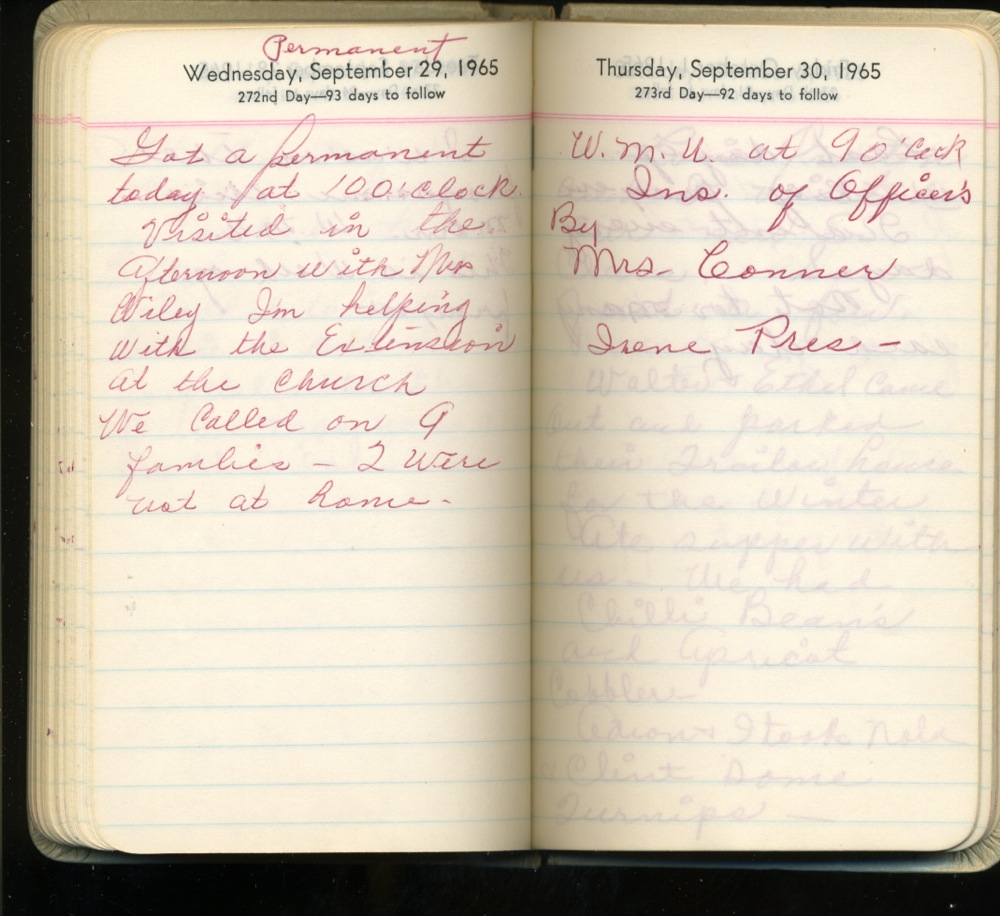 Permanent
Wednesday, September 29, 1965
272nd Day—93 days to follow
Got a permanent
today at 10 O'Clock.
Visited in the
Afternoon with Mrs
Wiley Im helping
with the Extension
at the church
We Called on 9
families – 2 were
not at home -
Thursday, September 30, 1965
273rd Day—92 days to follow
W. M. U. at 9 O'Clock
Ins. of Officer's
By
Mrs. Conner
Irene Pres –
Walter & Ethel Came
out and parked
their Trailer house
for the Winter
Ate supper with
us – We had
Chilli Bean's
and Apricot
Cobbler
& I took Nola
& Clint Some
Turnips –